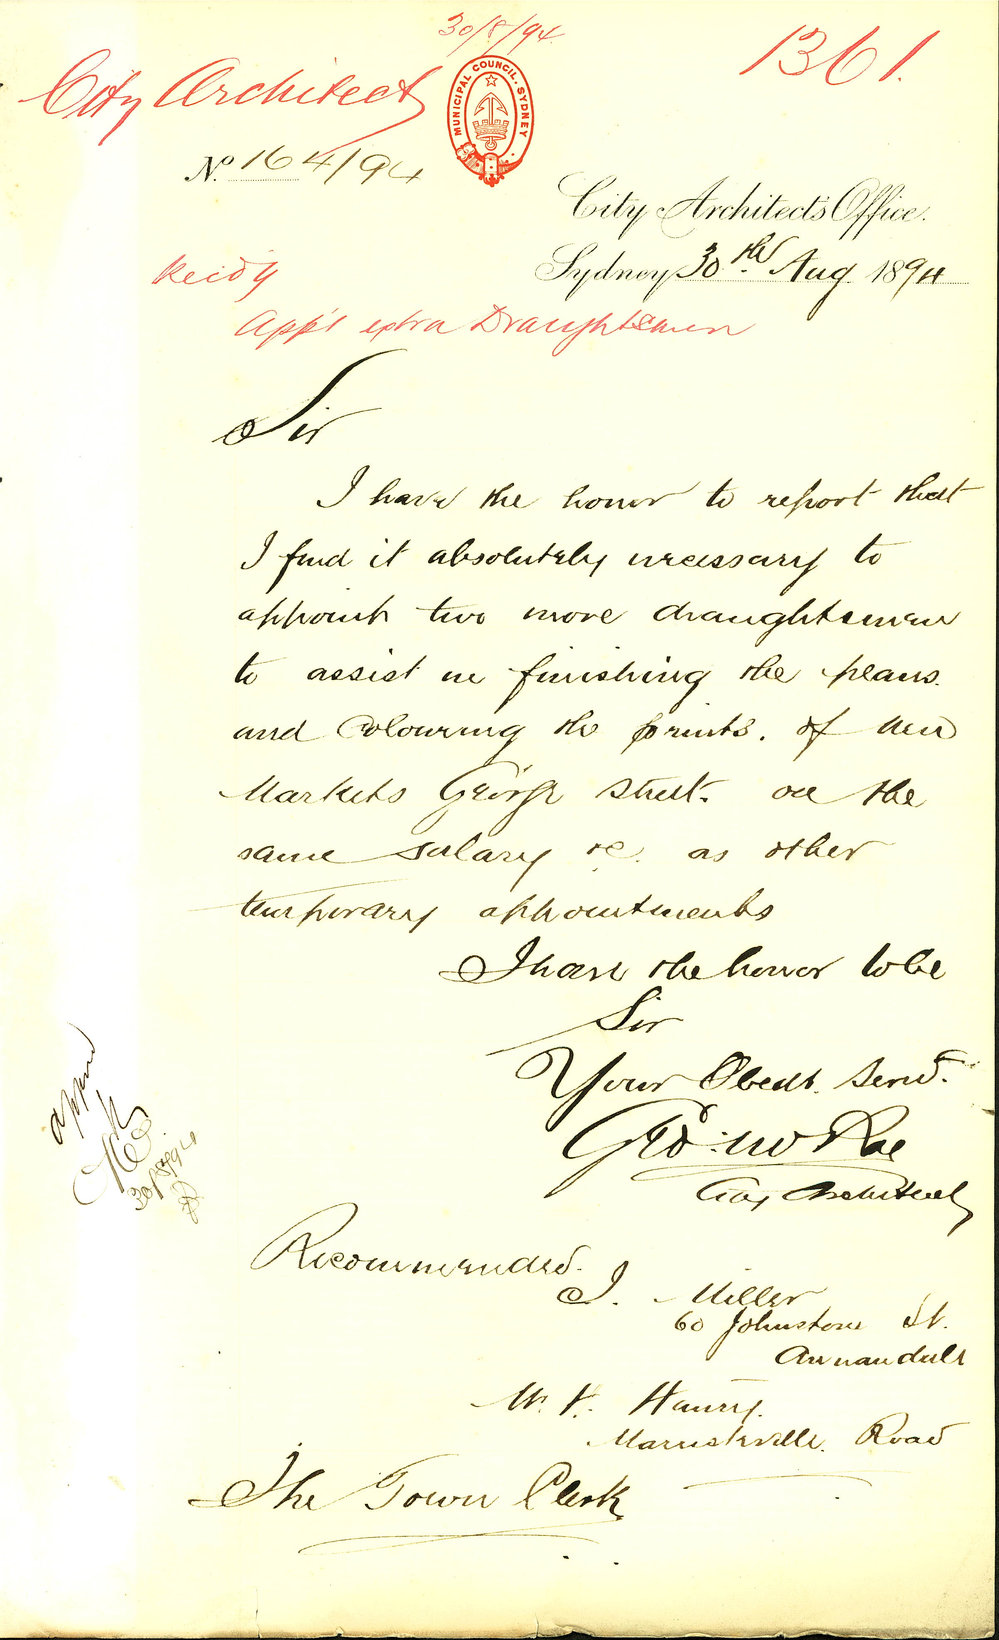 30/8/94
1361.
City Architect
MUNICIPAL COUNCIL. SYDNEY
No. 164/94
City Architect's Office.
Sydney 30th Aug 1894
App't extra Draughtsmen
Sir
I have the honor to report that
I find it absolutely necessary to
appoint two more draughtsmen
to assist in finishing the plans
and colouring the prints. of new
Markets George Street. on the
same salary &c. as other
temporary appointments
I have the honor to be
Sir
Your Obedt. Servt.
Geo: McRae
City Architect
30/8/94
Recommended.
J. Miller
60 Johnstone St.
Annandale
W. H.
Marrickville Road
The Town Clerk